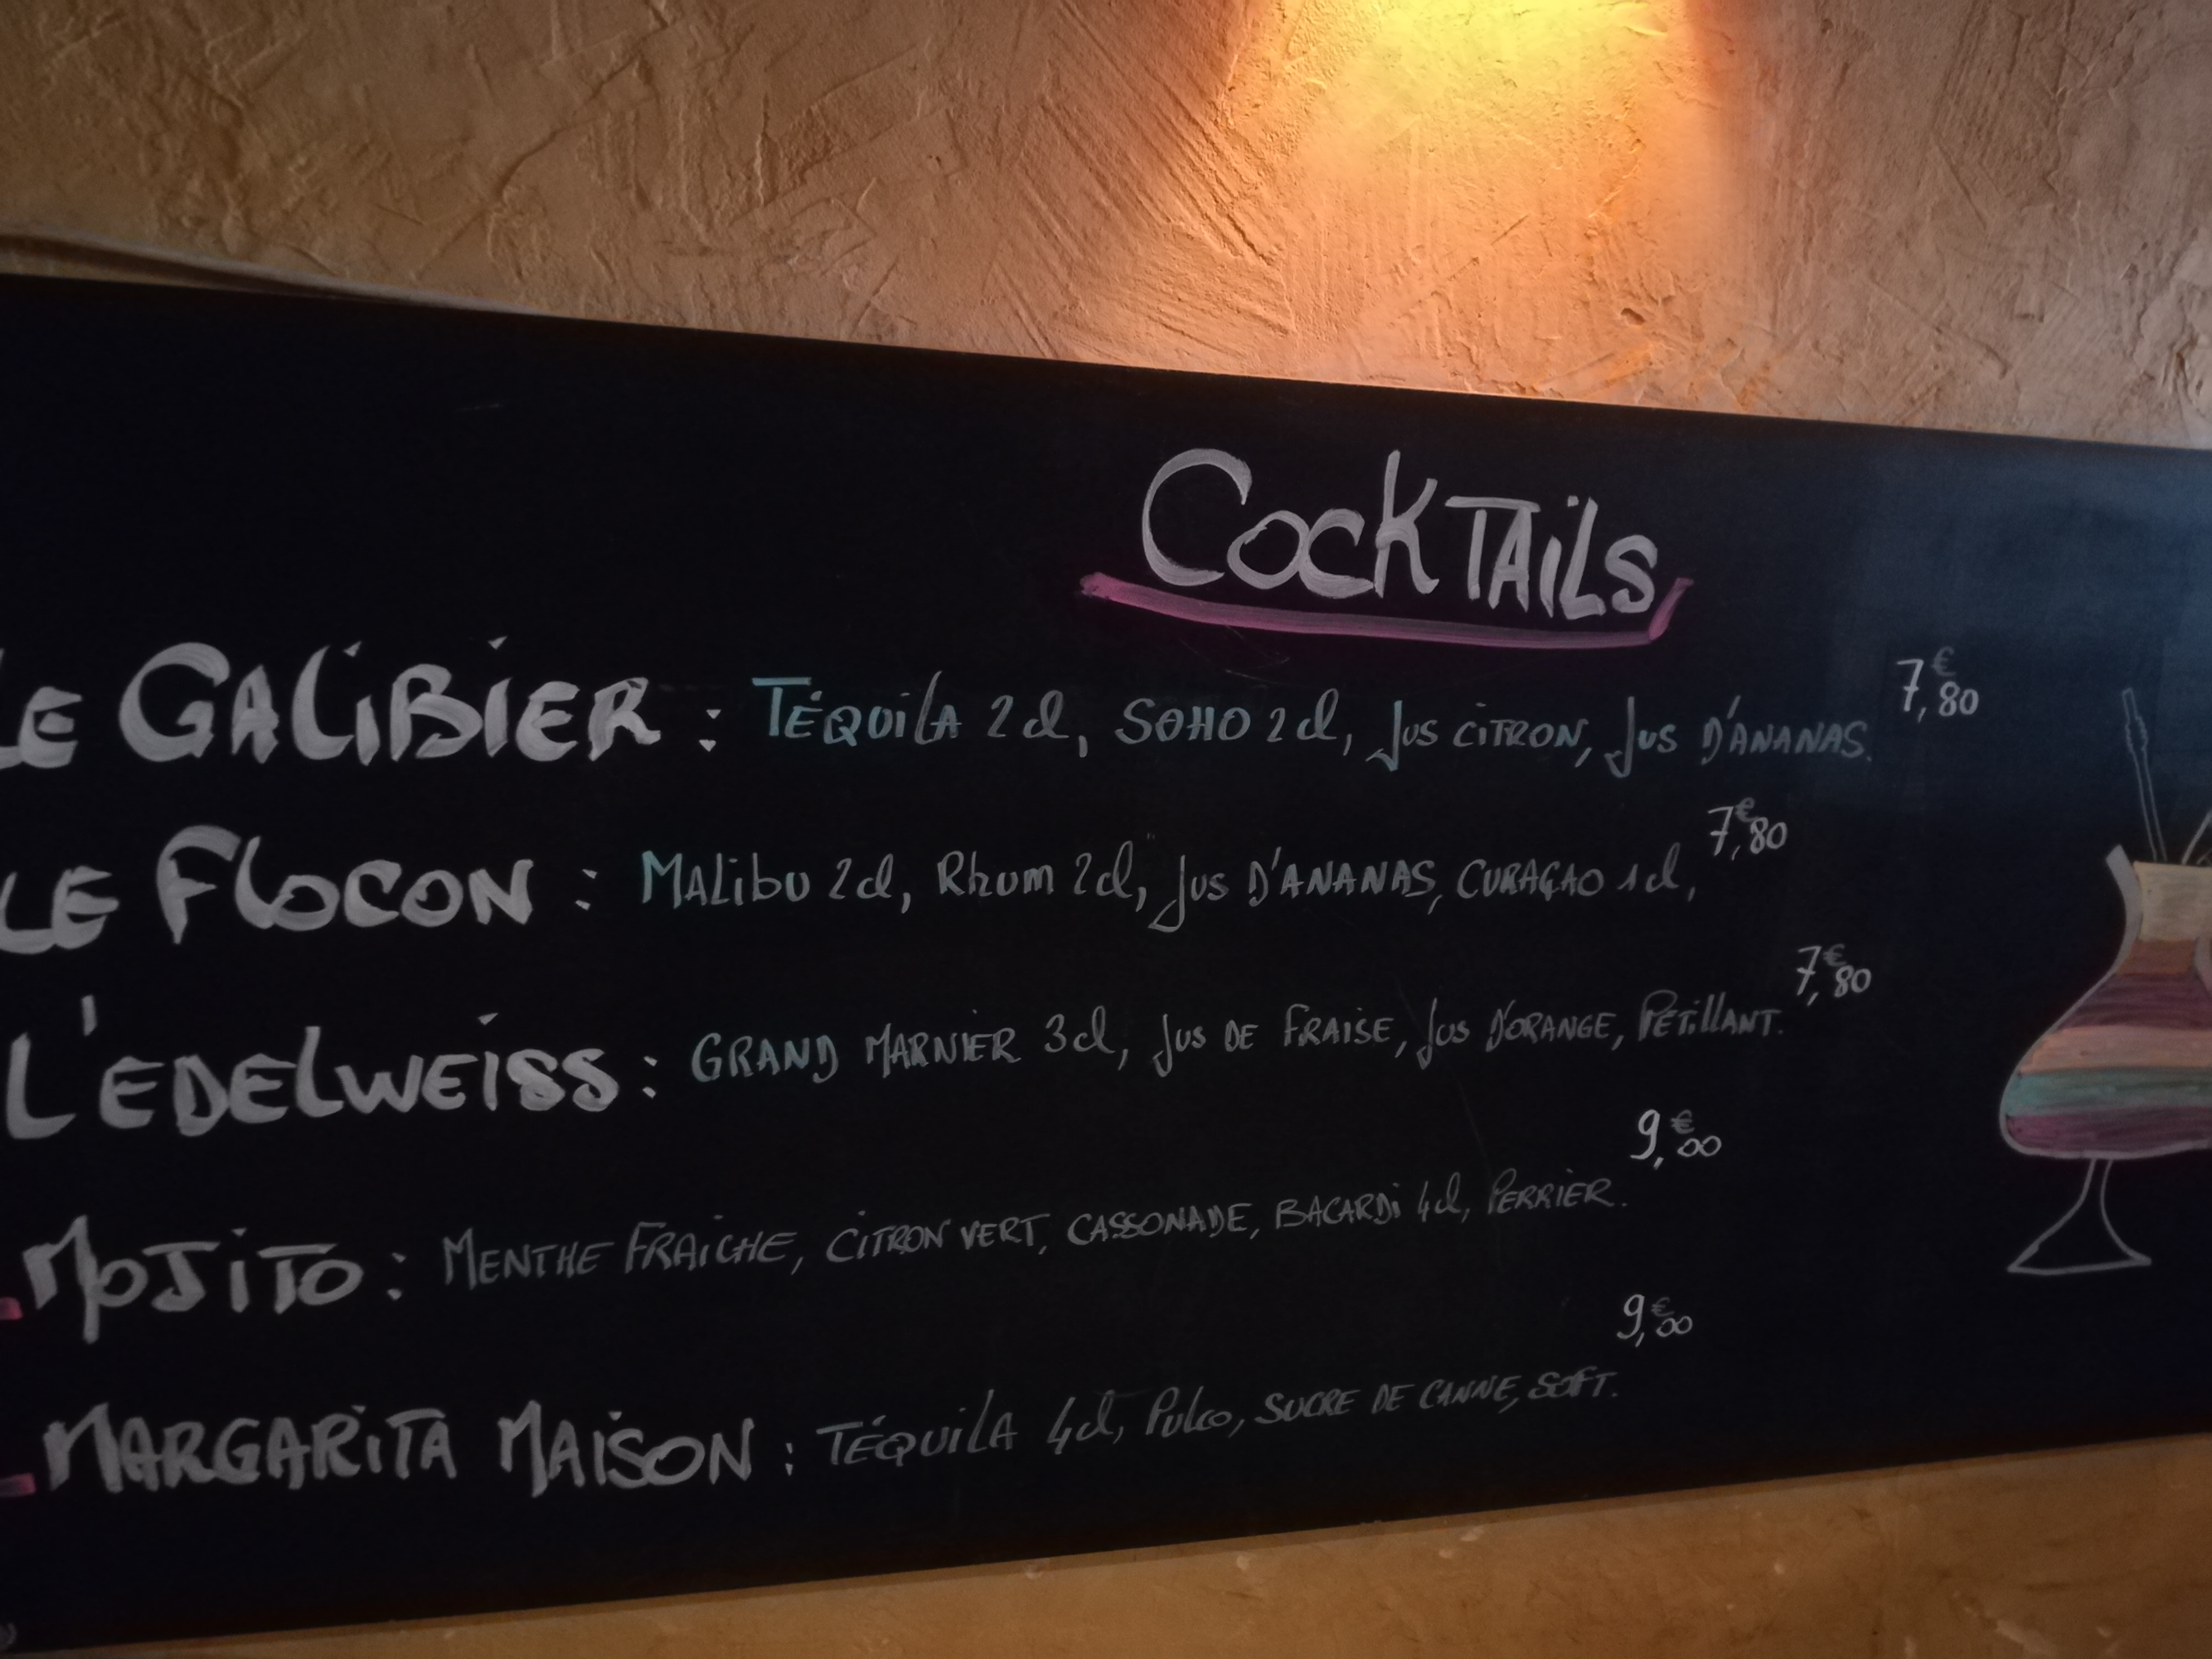 CockTAiLs
LE GALiBiER : TÉQUiLA 2cl, SOHO 2cl, Jus CiTRON, Jus D'ANANAS. 7,€80
LE FLOCON : MALibu 2cl, Rhum 2cl, Jus D'ANANAS, CURAÇAO 1cl, 7,€80
L'EDELWEiSS : GRAND MARNIER 3cl, Jus DE FRAISE, Jus D'ORANGE, PÉTiLLANT. 7,€80
MOJiTO : MENTHE FRAiCHE, CiTRON VERT, CASSONADE, BACARDi 4cl, PERRIER. 9,€00
MARGARiTA MAiSON : TÉQUiLA 4cl, Pulco, SUCRE DE CANNE, SOFT. 9,€00